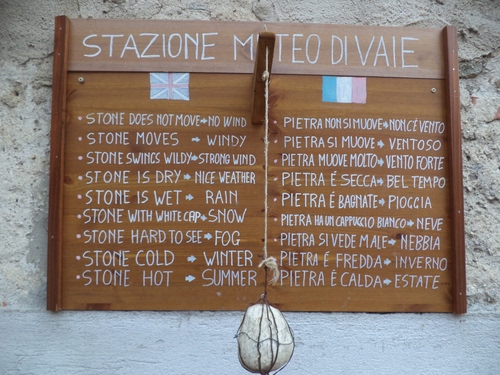 STAZIONE METEO DI VAIE
STONE DOES NOT MOVE➔NO WIND
STONE MOVES ➔ WINDY
STONE SWINGS WILDY➔STRONG WIND
STONE IS DRY➔NICE WEATHER
STONE IS WET➔ RAIN
STONE WITH WHITE CAP➔SNOW
STONE HARD TO SEE➔FOG
STONE COLD ➔ WINTER
STONE HOT ➔ SUMMER
PIETRA NON SI MUOVE➔NON C'È VENTO
PIETRA SI MUOVE ➔ VENTOSO
PIETRA MUOVE MOLTO➔VENTO FORTE
PIETRA É SECCA➔BEL TEMPO
PIETRA É BAGNATE➔PIOGGIA
PIETRA HA UN CAPPUCCIO BIANCO➔NEVE
PIETRA SI VEDE MALE➔NEBBIA
PIETRA É FREDDA➔INVERNO
PIETRA É CALDA➔ESTATE